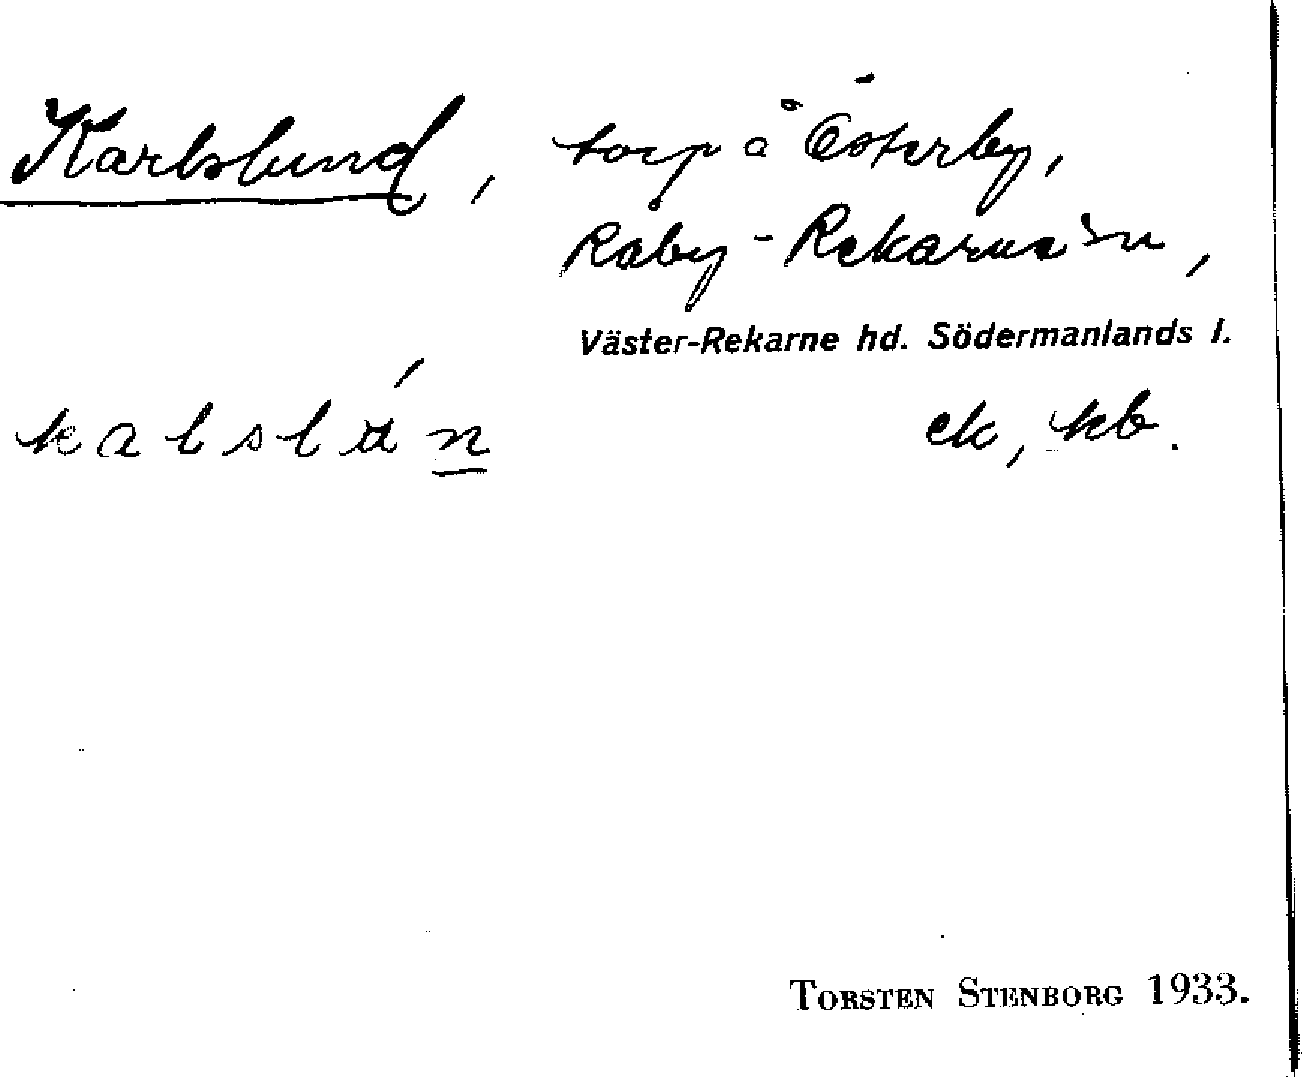 Karlslund, torp å Österby,
Råby-Rekarne sn,
Väster-Rekarne hd. Södermanlands l.
kalslún ek, kb.
TORSTEN STENBORG 1933.